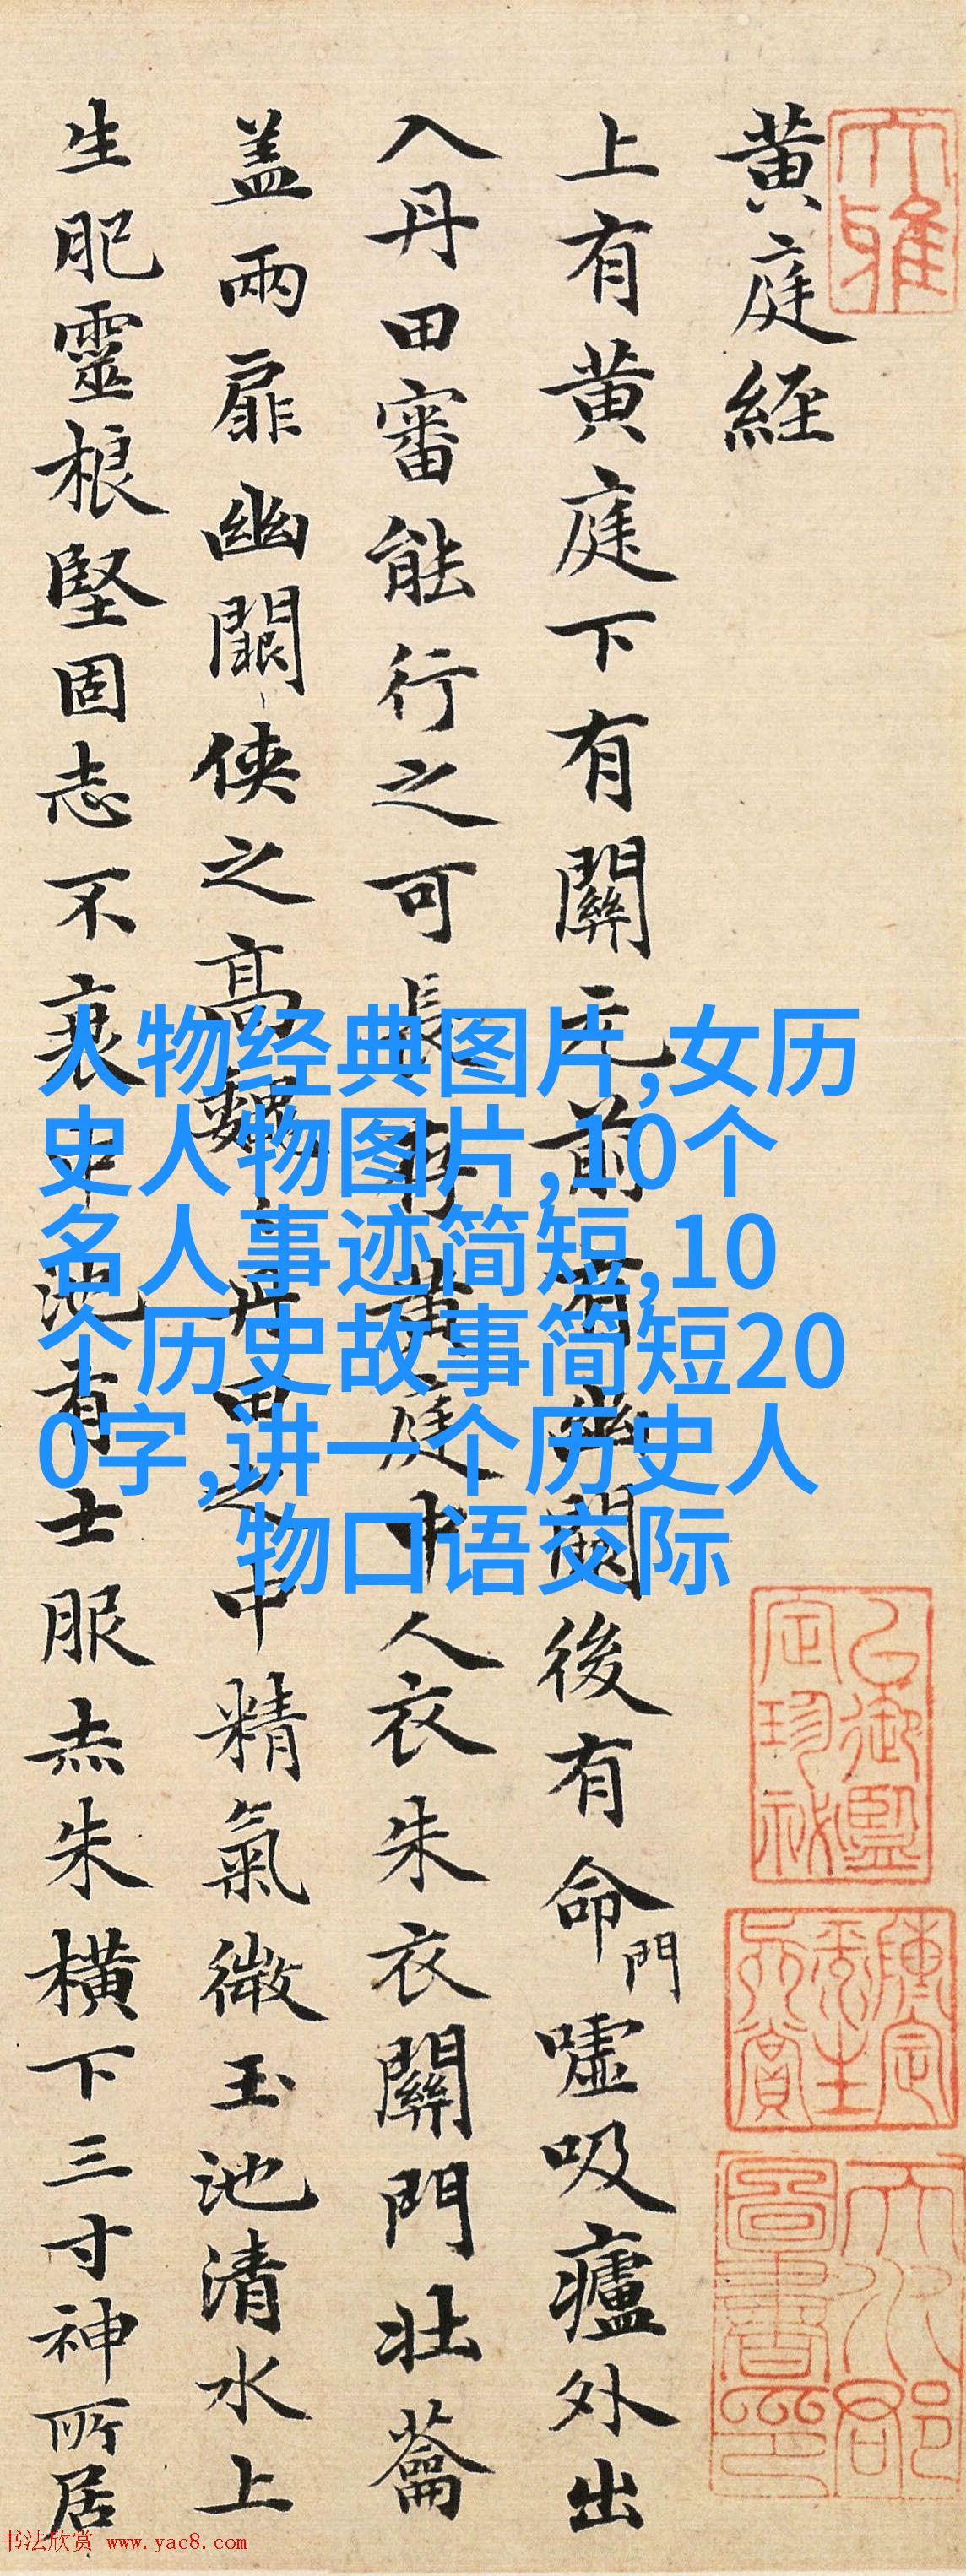 大雅
黄庭経
上有黄庭下有關元前有幽闕後有命門嘘吸廬外出
入丹田審能行之可長存黄庭中人衣朱衣關門壮蘥
盖兩扉幽闕侠之高巍丹田之中精氣微玉池清水上
生肥靈根堅固志不衰中池有士服赤朱横下三寸神所居
人物经典图片,女历
史人物图片,10个
名人事迹简短,10
个历史故事简短20
0字,讲一个历史人
物口语交际
书法欣赏 www.yac8.com